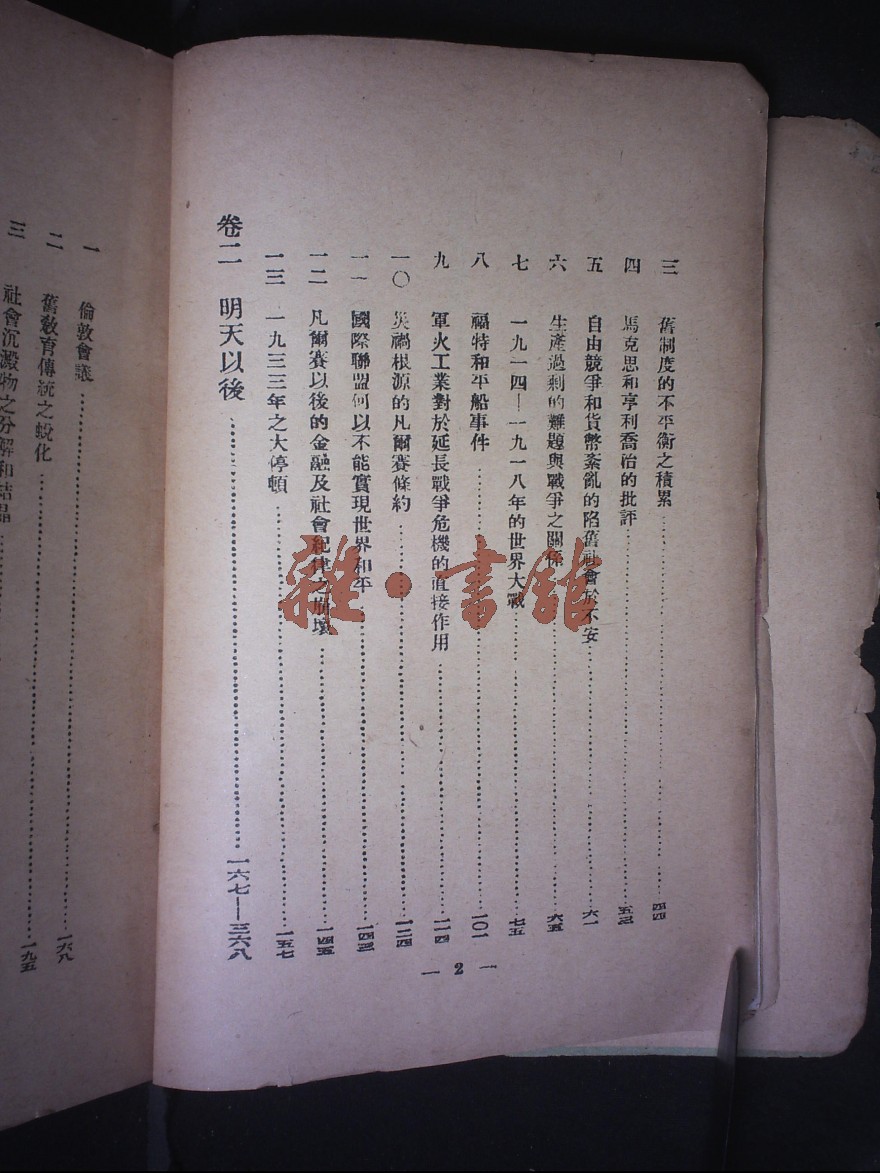 三 舊制度的不平衡之積累 四四
四 馬克思和亨利喬治的批評
五 自由競爭和貨幣紊亂的陷舊社會於不安 六一
六 生產過剩的難題與戰爭之關係 六五
七 一九一四—一九一八年的世界大戰 七五
八 福特和平船事件 一〇一
九 軍火工業對於延長戰爭危機的直接作用 一一四
一〇 災禍根源的凡爾賽條約 一二四
一一 國際聯盟何以不能實現世界和平
一二 凡爾賽以後的金融及社會紀律之崩壞 一四五
一三 一九三三年之大停頓 一五七
卷二 明天以後 一六七—三六八
— 2 —
一 倫敦會議
二 舊教育傳統之蛻化 一六八
三 社會沉澱物之分解和結晶 一九五
雜·書館